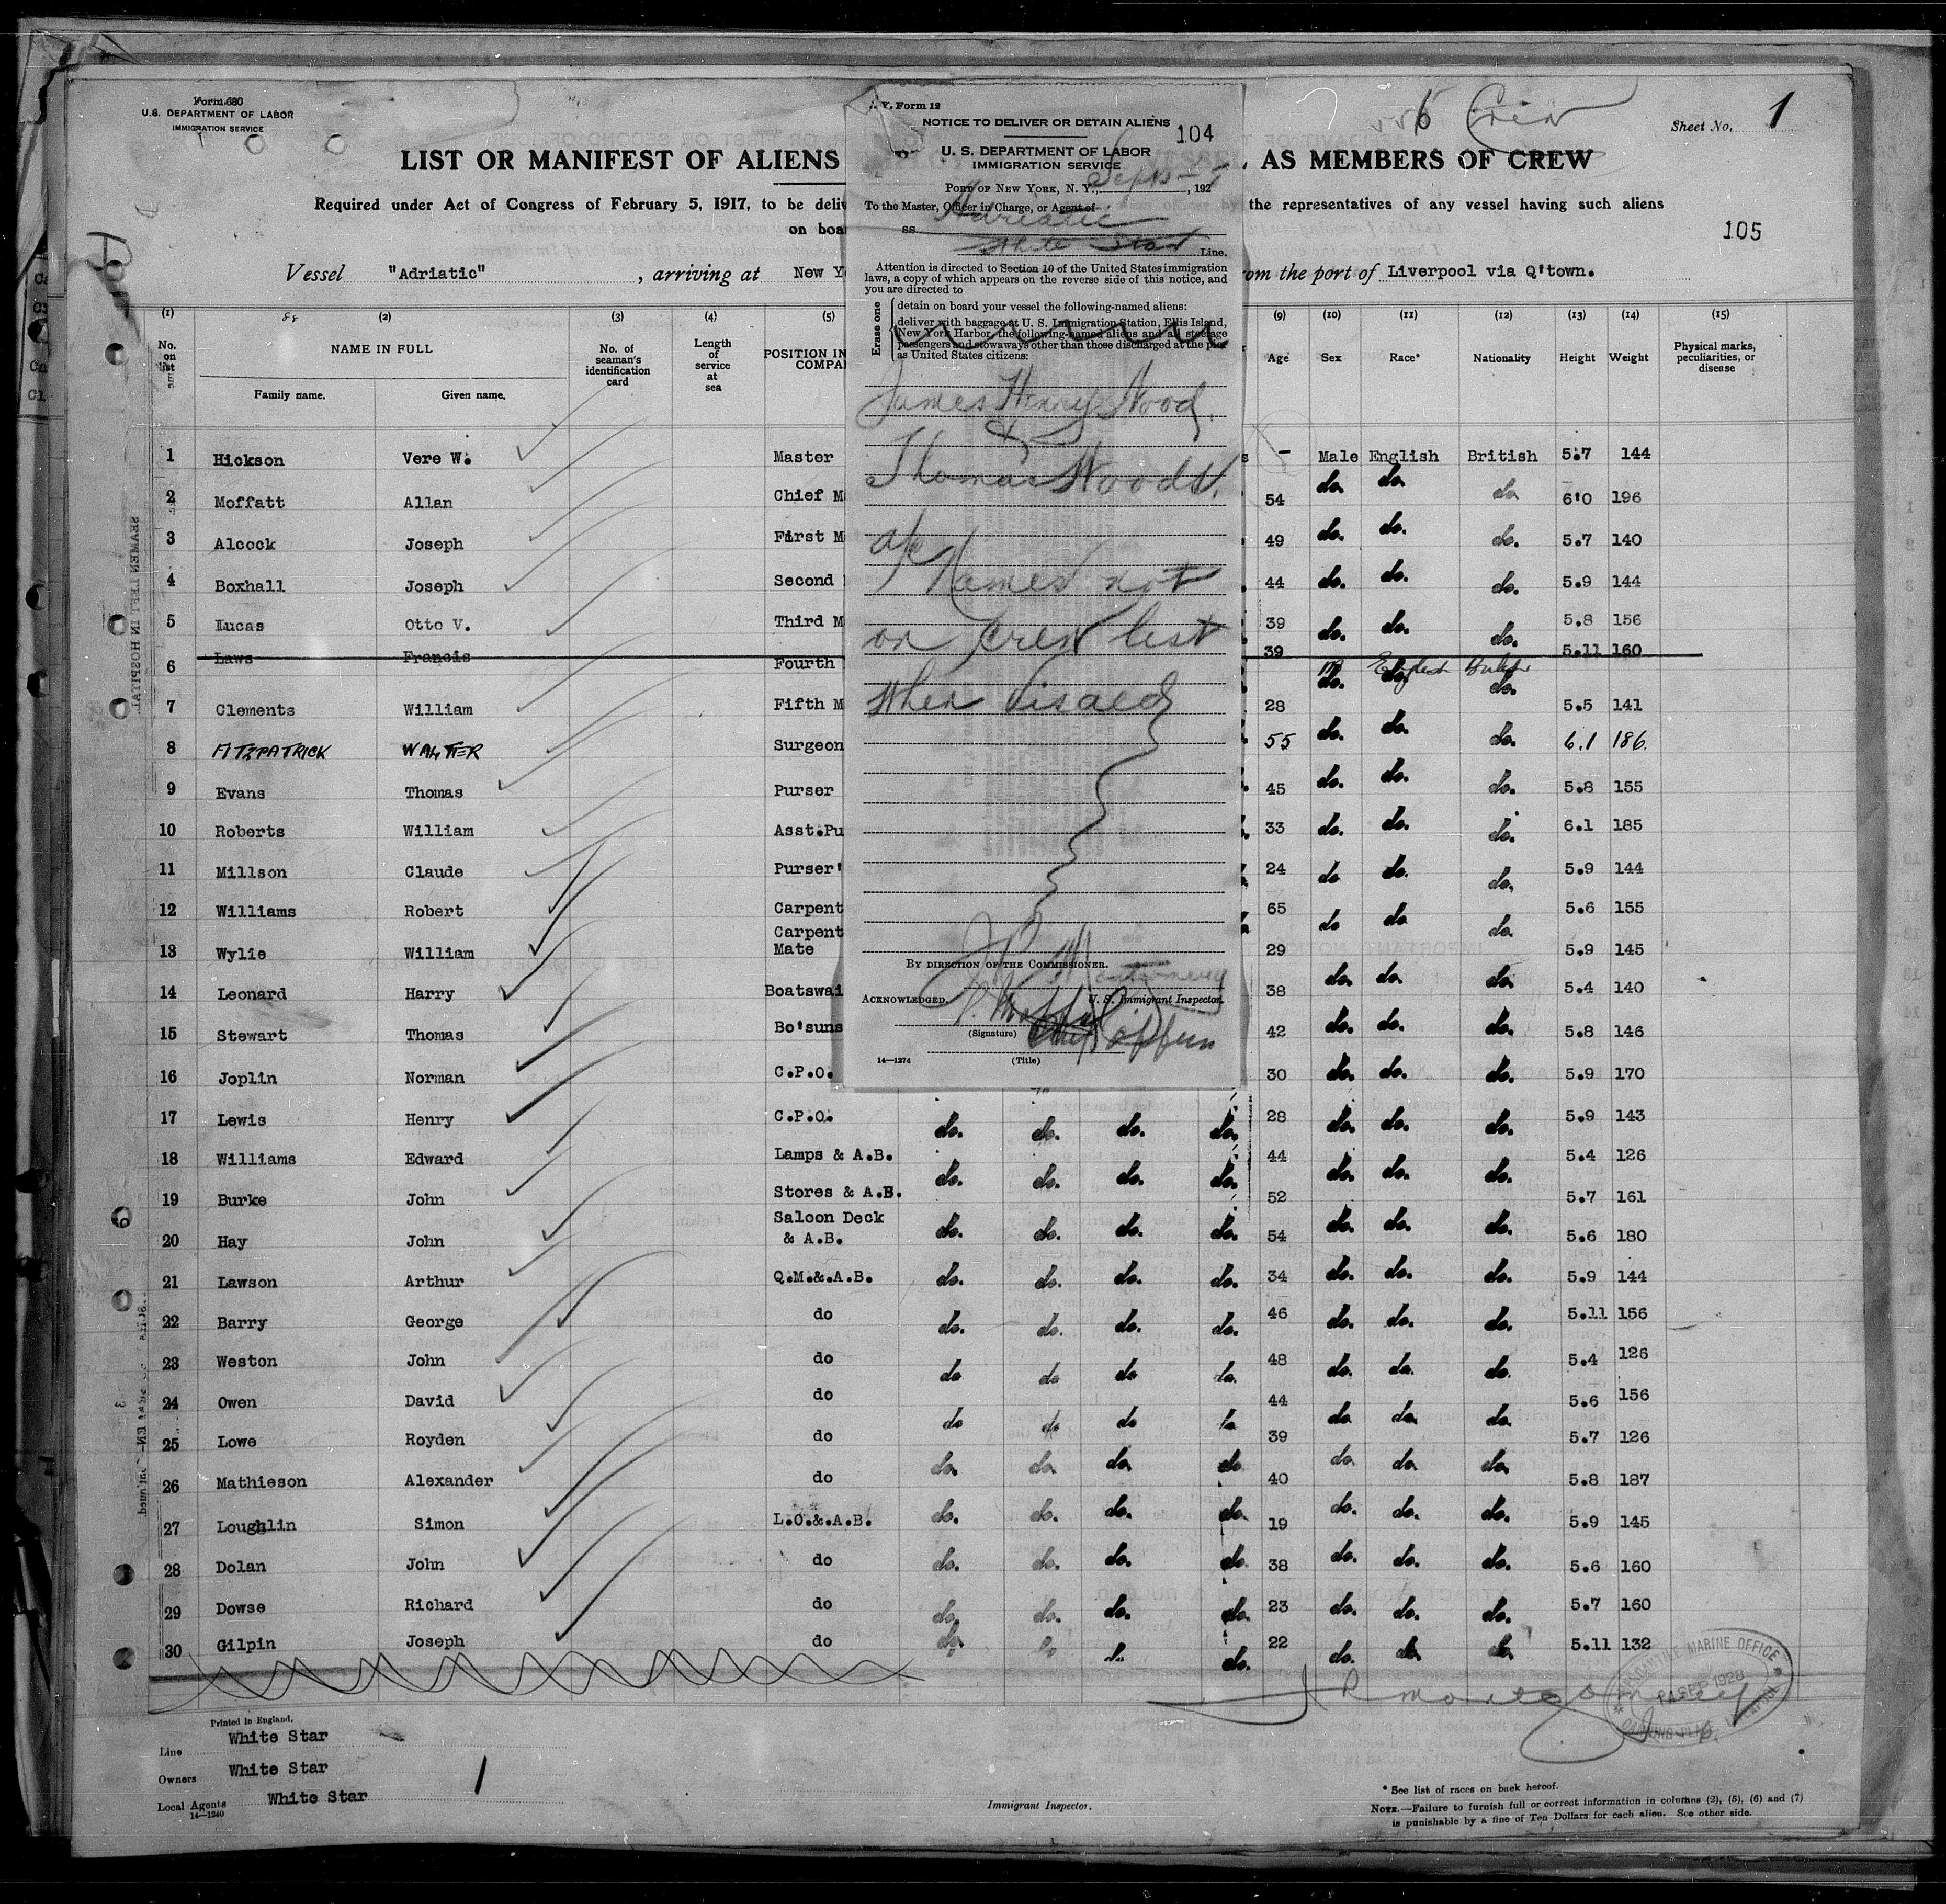 Form 680
U.S. DEPARTMENT OF LABOR
IMMIGRATION SERVICE
Crew
Sheet No. 1
LIST OR MANIFEST OF ALIENS
AS MEMBERS OF CREW
Required under Act of Congress of February 5, 1917, to be deliv
the representatives of any vessel having such aliens
on boar
105
Vessel "Adriatic", arriving at New Y
om the port of Liverpool via Q'town.
N. Y. Form 12
NOTICE TO DELIVER OR DETAIN ALIENS
104
U. S. DEPARTMENT OF LABOR
IMMIGRATION SERVICE
PORT OF NEW YORK, N. Y., Sept , 192
To the Master, Officer in Charge, or Agent of
ss. Adriatic
White Star Line.
Attention is directed to Section 10 of the United States immigration
laws, a copy of which appears on the reverse side of this notice, and
you are directed to
Erase one
detain on board your vessel the following-named aliens:
deliver with baggage at U. S. Immigration Station, Ellis Island,
New York Harbor, the following-named aliens and all steerage
passengers and stowaways other than those discharged at the pier
as United States citizens:
James Henry Wood
&
Thomas Woods.
a/c
Names not
on crew list
when visaed
BY DIRECTION OF THE COMMISSIONER.
J R Montgomery
ACKNOWLEDGED. U. S. Immigrant Inspector.
(Signature)
(Title)
14—1274
(1) (2) (3) (4) (5) (9) (10) (11) (12) (13) (14) (15)
No. on list
NAME IN FULL
Family name. Given name.
No. of seaman's identification card
Length of service at sea
POSITION IN
COMPA
Age Sex Race* Nationality Height Weight Physical marks, peculiarities, or disease
1 Hickson Vere W. Master – Male English British 5.7 144
2 Moffatt Allan Chief M 54 do. do. do 6'0 196
3 Alcock Joseph First M 49 do. do. do. 5.7 140
4 Boxhall Joseph Second 44 do. do. do. 5.9 144
5 Lucas Otto V. Third M 39 do. do. do. 5.8 156
6 Laws Francis Fourth 39 do. do. do. 5.11 160
7 Clements William Fifth M 28 5.5 141
8 FITZPATRICK WALTER Surgeon 55 do. do. do. 6.1 186.
9 Evans Thomas Purser 45 do. do. do. 5.8 155
10 Roberts William Asst.Pu 33 do. do. do. 6.1 185
11 Millson Claude Purser' 24 do do. do. 5.9 144
12 Williams Robert Carpent 65 do do do. 5.6 155
13 Wylie William Carpent Mate 29 5.9 145
14 Leonard Harry Boatswai 38 do. do. do. 5.4 140
15 Stewart Thomas Bo'suns 42 do. do. do. 5.8 146
16 Joplin Norman C.P.O. 30 do. do. do. 5.9 170
17 Lewis Henry C.P.O. do. do. do. do. 28 do. do. do. 5.9 143
18 Williams Edward Lamps & A.B. do. do. do. do. 44 do. do. do. 5.4 126
19 Burke John Stores & A.B. 52 5.7 161
20 Hay John Saloon Deck & A.B. do. do. do. do. 54 do. do. do. 5.6 180
21 Lawson Arthur Q.M.&.A.B. do. do. do. do. 34 do. do. do. 5.9 144
22 Barry George do do. do. do. do. 46 do. do. do. 5.11 156
23 Weston John do do do do do. 48 do. do. do. 5.4 126
24 Owen David do do do do 44 do do. do. 5.6 156
25 Lowe Royden do 39 5.7 126
26 Mathieson Alexander do do. do. do. do. 40 do. do. do. 5.8 187
27 Loughlin Simon L.O.&.A.B. do. do. do. do. 19 do. do. do. 5.9 145
28 Dolan John do do. do. do. do. 38 do. do. do. 5.6 160
29 Dowse Richard do do. do. do. do. 23 do. do. do. 5.7 160
30 Gilpin Joseph do do. do. do. do. 22 do. do. do. 5.11 132
J R Montgomery
MARINE OFFICE
SEP 1928
Printed in England.
Line White Star
Owners White Star
Local Agents White Star
14—1240
1
Immigrant Inspector.
* See list of races on back hereof.
NOTE.—Failure to furnish full or correct information in columns (2), (5), (6) and (7)
is punishable by a fine of Ten Dollars for each alien. See other side.
SEAMEN LEFT IN HOSPITAL